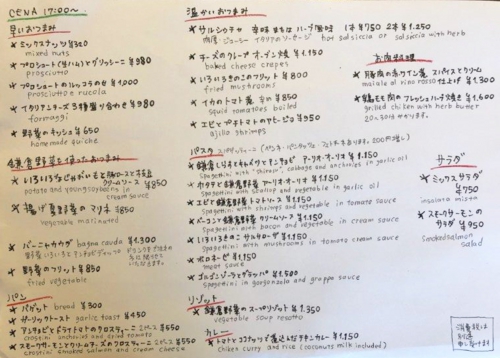 CENA 17:00〜
早いおつまみ
★ミックスナッツ ¥320
mixed nuts
★プロシュート(生ハム)とグリッシーニ ¥980
prosciutto
★プロシュートのルッコラのせ ¥1,000
prosciutto e rucola
★イタリアンチーズ3種盛り合わせ ¥980
formaggi
★野菜のキッシュ ¥650
homemade quiche
鎌倉野菜を使ったおつまみ
クリームソース ¥850
potato and young soybeans in cream sauce
★揚げ夏野菜のマリネ ¥850
vegetable marinated
★バーニャカウダ bagna cauda ¥1,300
★野菜のフリット ¥850
fried vegetable
パン
★バゲット bread ¥300
★ガーリックトースト garlic toast ¥450
★アンチョビとドライトマトのクロスティーニ
crostini anchovies and dried tomato
★スモークサーモンとクリームチーズのクロスティーニ
crostini smoked salmon and cream cheese
温かいおつまみ
★サルシッチャ 辛味またはハーブ風味 1本 ¥750 2本 ¥1,250
肉厚・ジューシー イタリアのソーセージ hot salsiccia or salsiccia with herb
★チーズのクレープ オーブン焼き ¥1,150
baked cheese crepes
★いろいろきのこのフリット ¥800
fried mushrooms
★イカのトマト煮 辛め ¥850
squid tomatoes boiled
★エビとプチトマトのアヒージョ ¥950
ajillo shrimps
パスタ
アーリオ・オーリオ ¥1,100
spagettini with "Shirasu", cabbage and anchovies in garlic oil
★ホタテと鎌倉野菜 アーリオ・オーリオ ¥1,350
spagettini with scallop and vegetable in garlic oil
★エビと鎌倉野菜 トマトソース ¥1,350
spagettini with shrimps and vegetable in tomato sauce
★ベーコンと鎌倉野菜 クリームソース ¥1,350
spagettini with bacon and vegetable in cream sauce
★いろいろきのこ サルサローザ ¥1,350
spagettini with mushrooms in tomato cream sauce
★ボロネーゼ ¥1,150
meat sauce
★ゴルゴンゾーラとグラッパ ¥1,500
spagettini in gorgonzola and grappa sauce
リゾット
★鎌倉野菜のスープリゾット ¥1,350
vegetable soup resotto
カレー
★トマトとココナッツで煮込んだチキンカレー ¥1,150
chicken curry and rice (coconuts milk included)
お肉料理
★豚肉の赤ワイン煮 スパイスとクリーム仕上げ ¥1,300
maiale al vino rosso
★鶏もも肉のフレッシュハーブ焼き ¥1,600
grilled chicken with herb butter
20〜30分かかります。
サラダ
★ミックスサラダ
¥750
insalata mista
★スモークサーモンのサラダ ¥950
smoked salmon salad
消費税は
別途
申し受けます